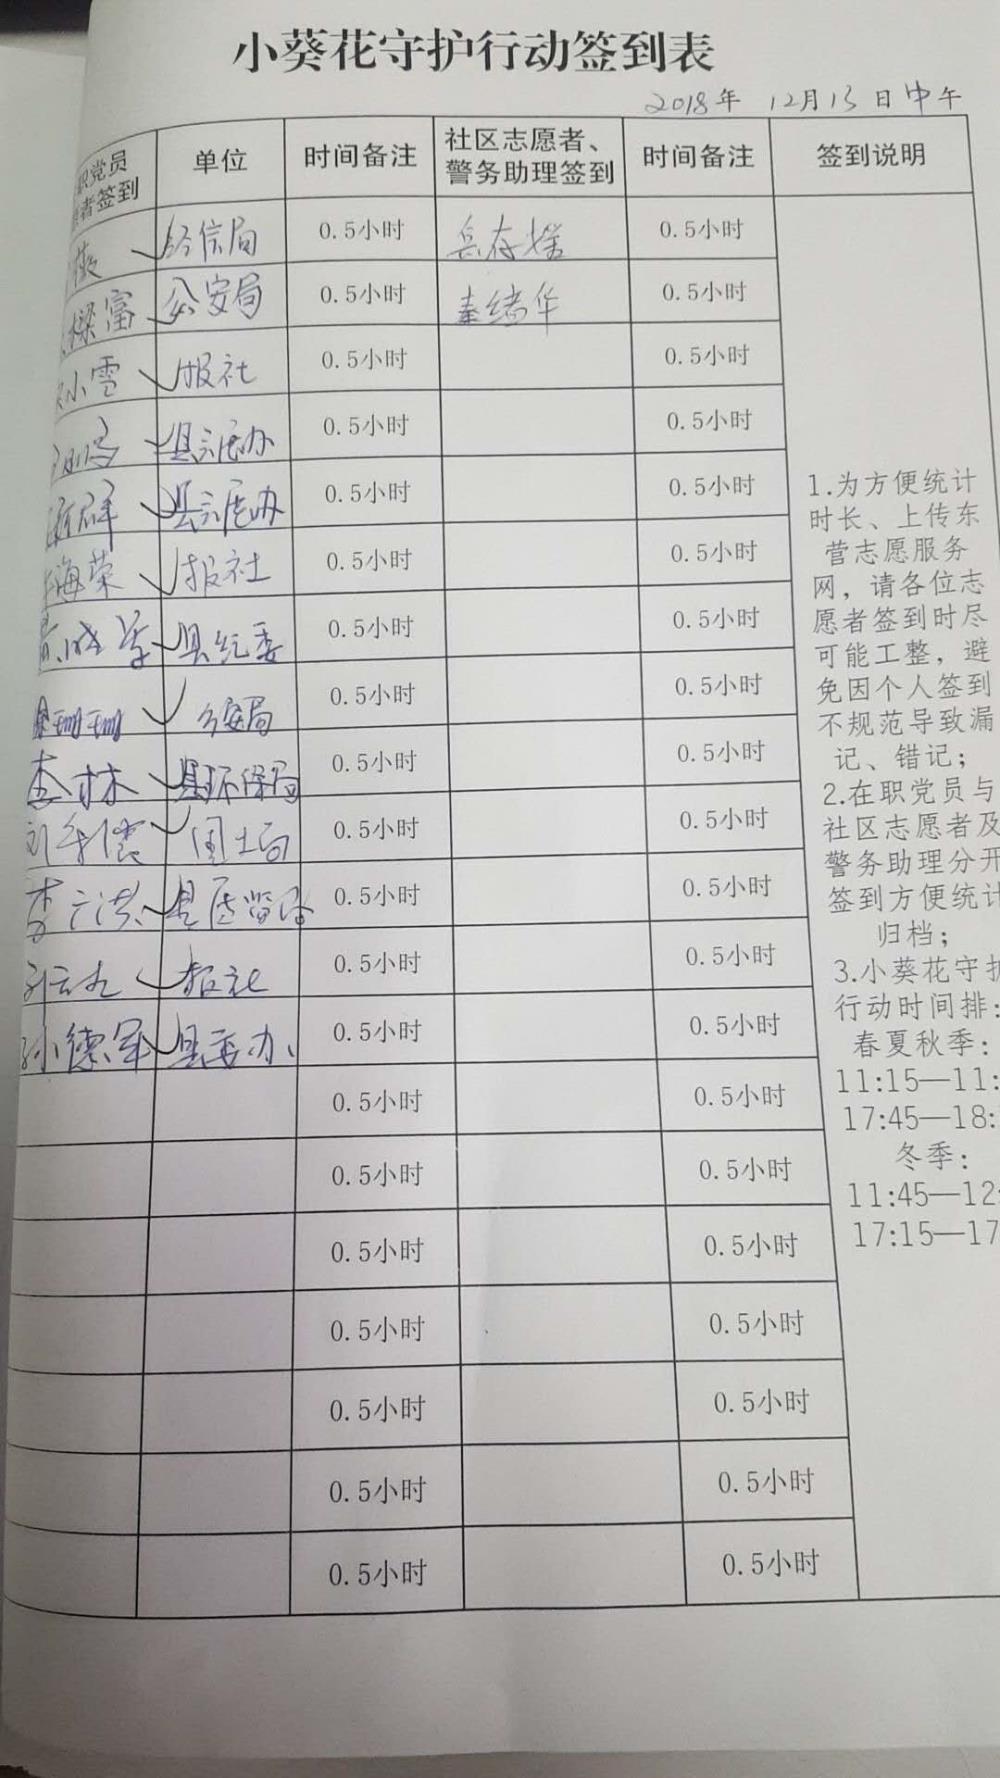 小葵花守护行动签到表
2018年 12月13日中午
职党员 单位 时间备注 社区志愿者、 时间备注 签到说明
者签到 警务助理签到
经信局 0.5小时 0.5小时
樑富 公安局 0.5小时 秦绪华 0.5小时
小雪 报社 0.5小时 0.5小时
0.5小时 0.5小时
群 0.5小时 0.5小时
海荣 报社 0.5小时 0.5小时
县纪委 0.5小时 0.5小时
公安局 0.5小时 0.5小时
李林 县环保局 0.5小时 0.5小时
国土局 0.5小时 0.5小时
李广洪 0.5小时 0.5小时
报社 0.5小时 0.5小时
孙德军 县委办 0.5小时 0.5小时
0.5小时 0.5小时
0.5小时 0.5小时
0.5小时 0.5小时
0.5小时 0.5小时
0.5小时 0.5小时
0.5小时 0.5小时
0.5小时 0.5小时
1.为方便统计
时长、上传东
营志愿服务
网，请各位志
愿者签到时尽
可能工整，避
免因个人签到
不规范导致漏
记、错记；
2.在职党员与
社区志愿者及
警务助理分开
签到方便统计
归档；
3.小葵花守护
行动时间排：
春夏秋季：
11:15—11:
17:45—18:
冬季：
11:45—12:
17:15—17